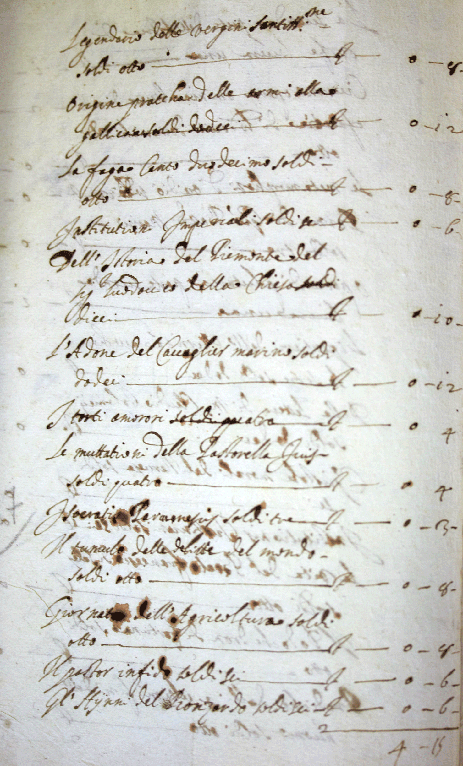 Legendario delle Vergini Santiss.me
soldi otto — 0 – 8
Origine prattcha delle armi alla
gallicana soldi dodeci — 0 – 12
La fuga Canto duodecimo soldi –
otto — 0 – 8
Institution Imperiali soldi sei — 0 – 6
Dell'Istoria del Piemonte del
Sig Ludovico della Chiesa soldi
dieci — 0 – 10
L'Adone del Cavaglier marino soldi
dodeci — 0 – 12
I torti amorosi soldi quatro — 0 4
Le muttationi della Pastorella
soldi quatro — 0 4
Isocratis soldi tre — 0 – 3
Il tumulo delle delitie del mondo –
soldi otto — 0 – 8
Giornate dell'Agricoltura soldi
otto — 0 – 8
Il pastor infido soldi sei — 0 – 6
Gl'Hynni del Ronzardo soldi sei — 0 – 6
4 – 15